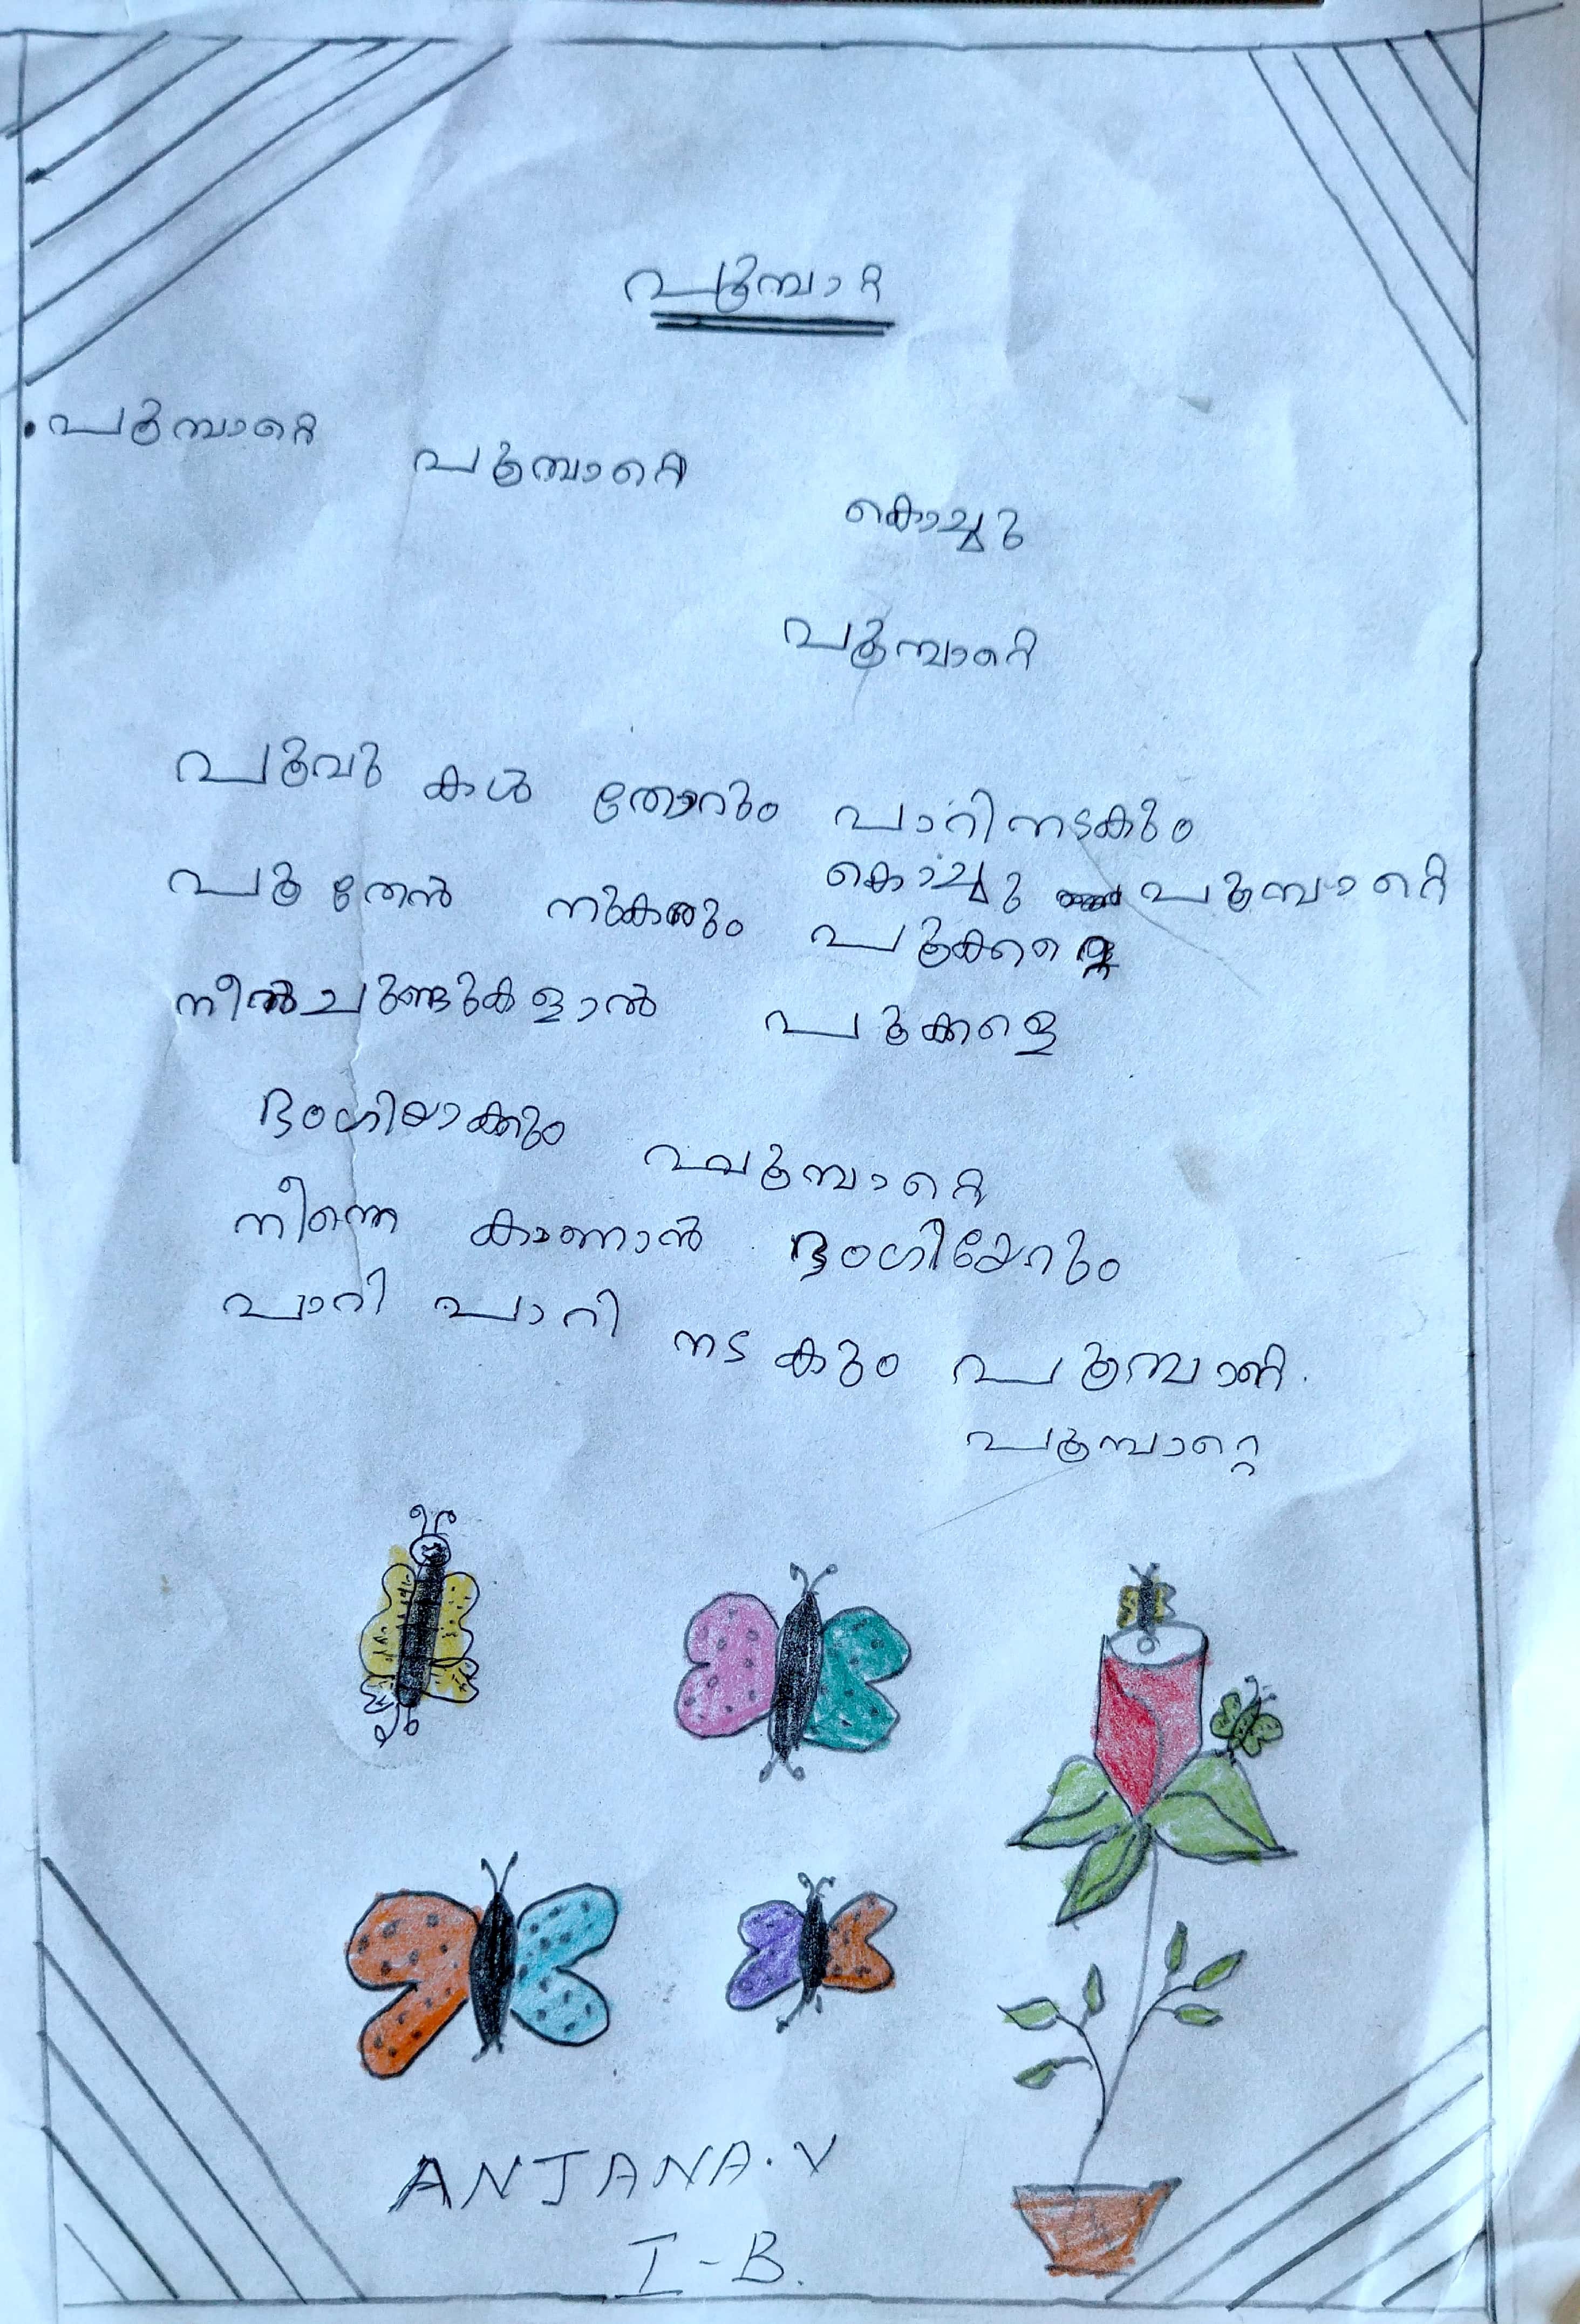 പൂമ്പാറ്റ
പൂമ്പാറ്റെ പൂമ്പാറ്റെ കൊച്ചു
പൂമ്പാറ്റെ
പൂവു കൾ തോറും പാറിനടകും
കൊച്ചു പൂമ്പാറ്റെ
പൂ തേൻ നുകരും പൂക്കളെ
നീൽചുണ്ടുകളാൽ പൂക്കളെ
ഭംഗിയാക്കും പൂമ്പാറ്റെ
നിന്നെ കാണാൻ ഭംഗിയേറും
പാറി പാറി നട കും
പൂമ്പാറ്റെ
ANJANA.V
I-B.